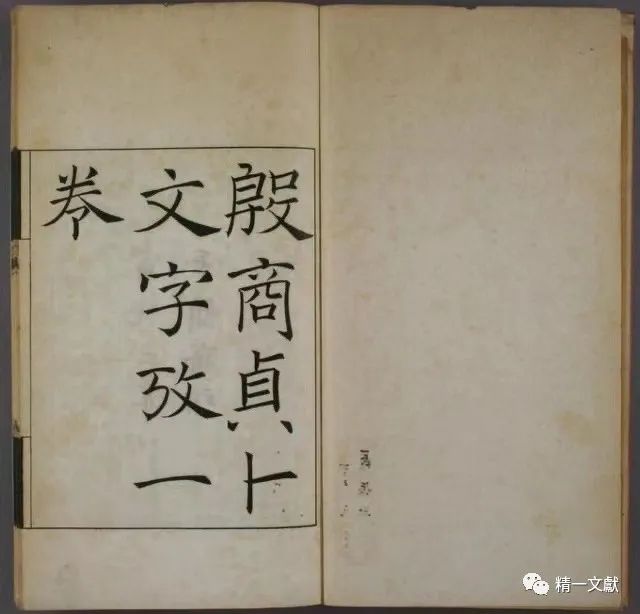 殷商貞卜
文字攷一
卷
精一文獻